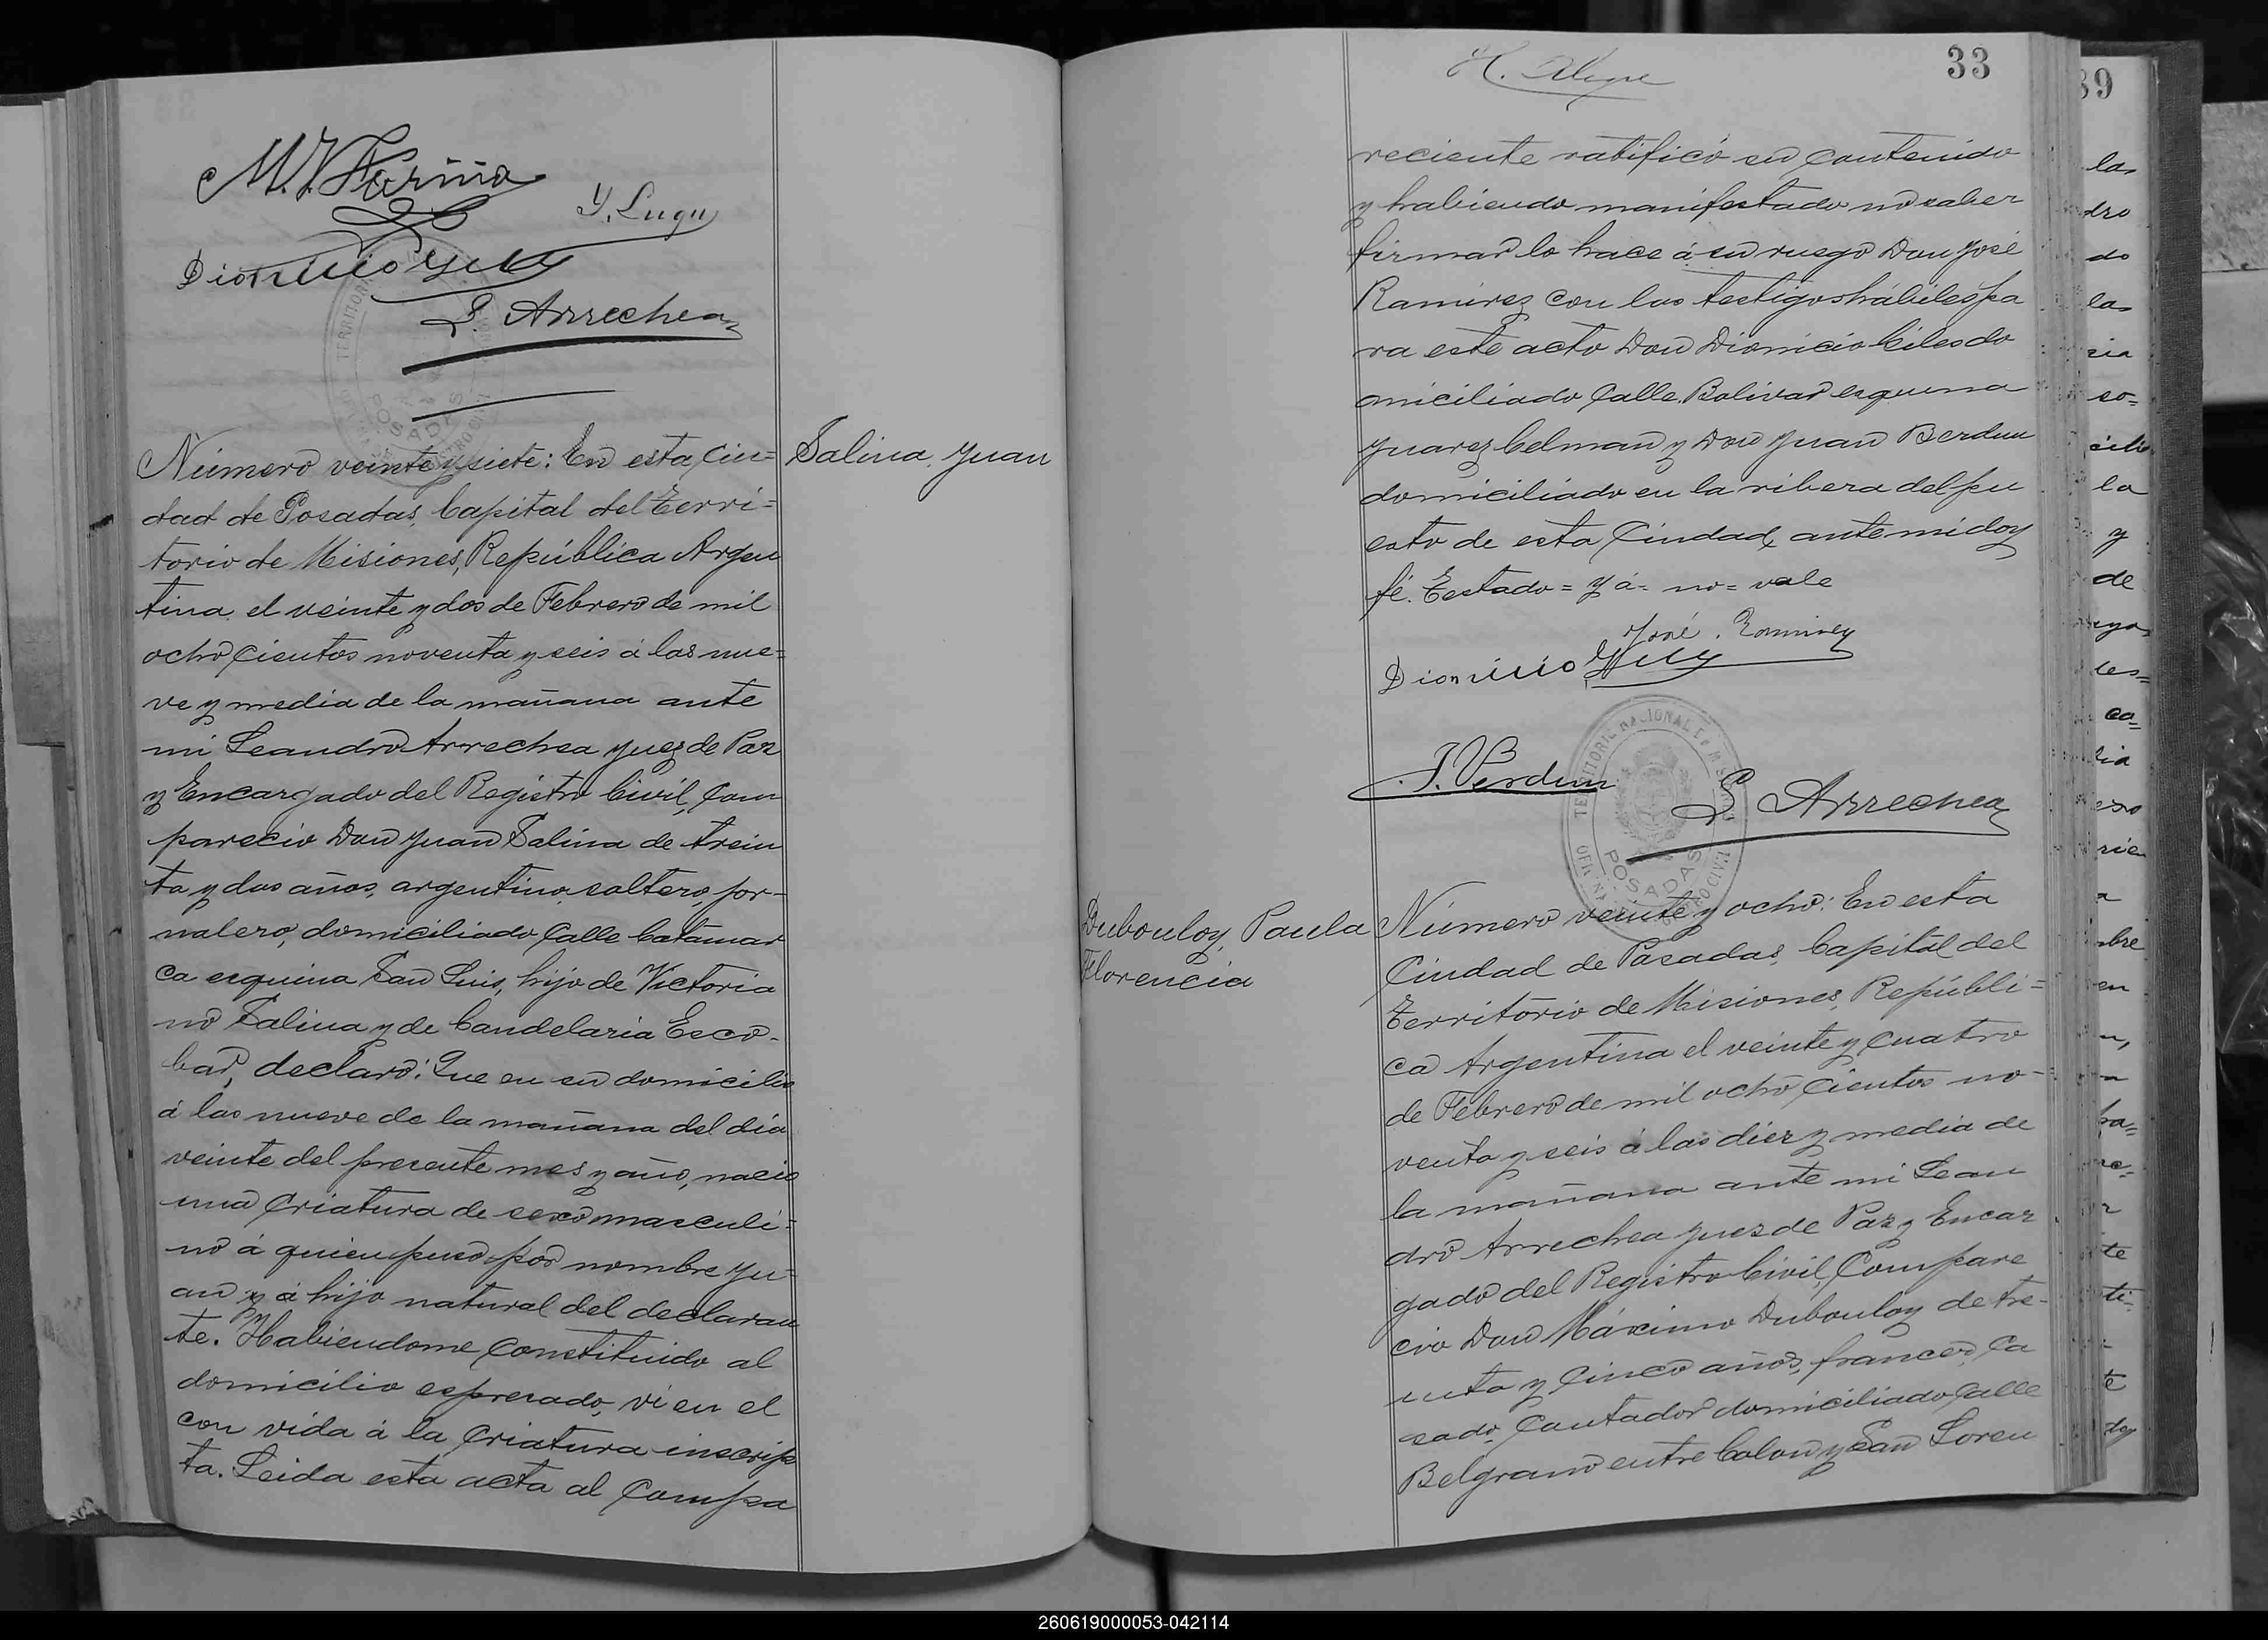 M. J. Fariña
Y. Lugu
Dionicio
L. Arrechea
Número veinte y siete: En esta Ciu=
dad de Posadas, Capital del Terri=
torio de Misiones, República Argen
tina el veinte y dos de Febrero de mil
ocho cientos noventa y seis á las nue=
ve y media de la mañana ante
mi Leandro Arrechea Juez de Paz
y Encargado del Registro Civil, Com
parecio Don Juan Salina de trein
ta y dos años, argentino, soltero, jor-
nalero, domiciliado Calle Catamar
ca esquina San Luis, hijo de Victoria
no Salina y de Candelaria Esco-
bar, declaró: Que en su domicilio
á las nueve de la mañana del dia
veinte del presente mes y año, nacio
una Criatura de sexo masculi=
no á quien puso por nombre Ju=
an y á hijo natural del declaran
te. Habiendome Constituido al
domicilio espresado, vi en el
con vida á la Criatura inscrip
ta. Leida esta acta al Compa
Salina, Juan
33
reciente ratificó su Contenido
y habiendo manifestado no saber
firmar lo hace á su ruego Don José
Ramirez con los testigos hábiles pa
ra este acto Don Dionicio Giles do
miciliado Calle Bolivar esquina
Juarez Celman y Don Juan Berdun
domiciliado en la ribera del pu
erto de esta Ciudad, ante mi doy
fé. Testado = y á = no = vale
José Ramirez
Dionicio
J. Verdun
L. Arrechea
TERRITORIO NACIONAL DE MISIONES
POSADAS
Dubouloy, Paula
Florencia
Número veinte y ocho: En esta
Ciudad de Posadas, Capital del
Territorio de Misiones, Repúbli=
ca Argentina el veinte y cuatro
de Febrero de mil ocho Cientos no=
venta y seis á las diez y media de
la mañana ante mi Lean
dro Arrechea Juez de Paz y Encar
gado del Registro Civil, Compare
cio Don Máximo Dubouloy de tre-
inta y Cinco años, frances, Ca
sado, Contador domiciliado Calle
Belgrano entre Colon y San Loren
89
260619000053-042114